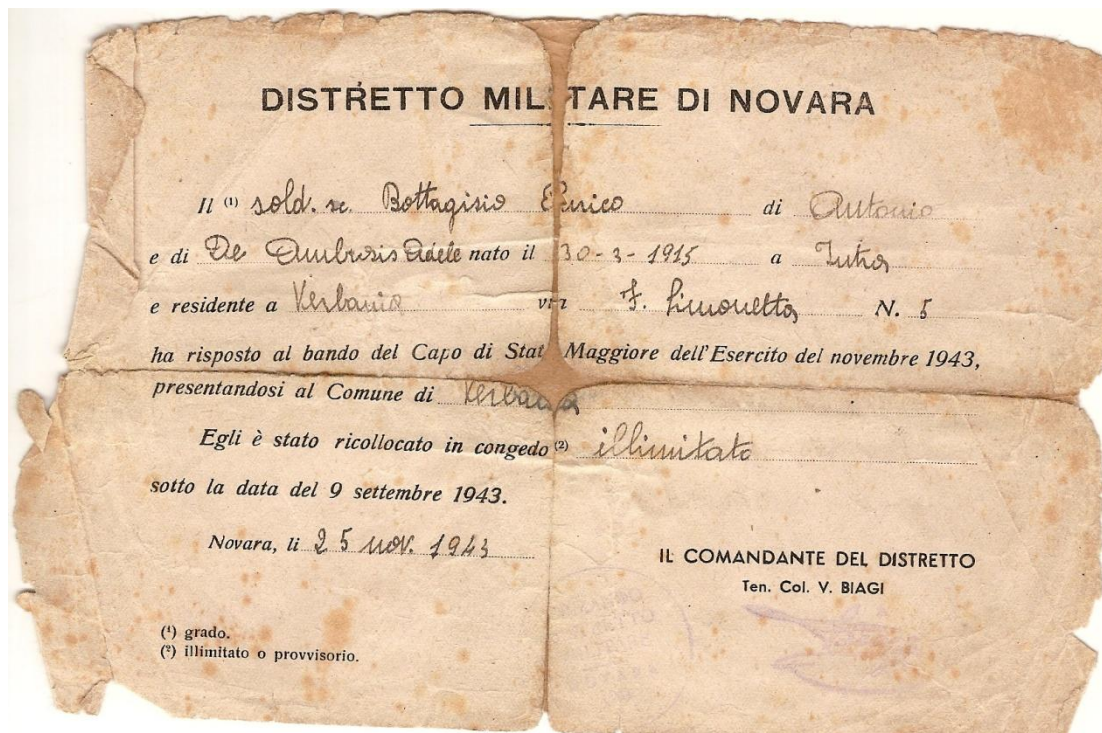 DISTRETTO MILITARE DI NOVARA
Il (1) sold. sc. Bottagisio Enrico di Antonio
e di De Ambrosis Adele nato il 30-3-1915 a Intra
e residente a Verbania via F. Simonetta N. 5
ha risposto al bando del Capo di Stato Maggiore dell'Esercito del novembre 1943,
presentandosi al Comune di Verbania
Egli è stato ricollocato in congedo (2) illimitato
sotto la data del 9 settembre 1943.
Novara, li 25 nov. 1943
IL COMANDANTE DEL DISTRETTO
Ten. Col. V. BIAGI
(1) grado.
(2) illimitato o provvisorio.